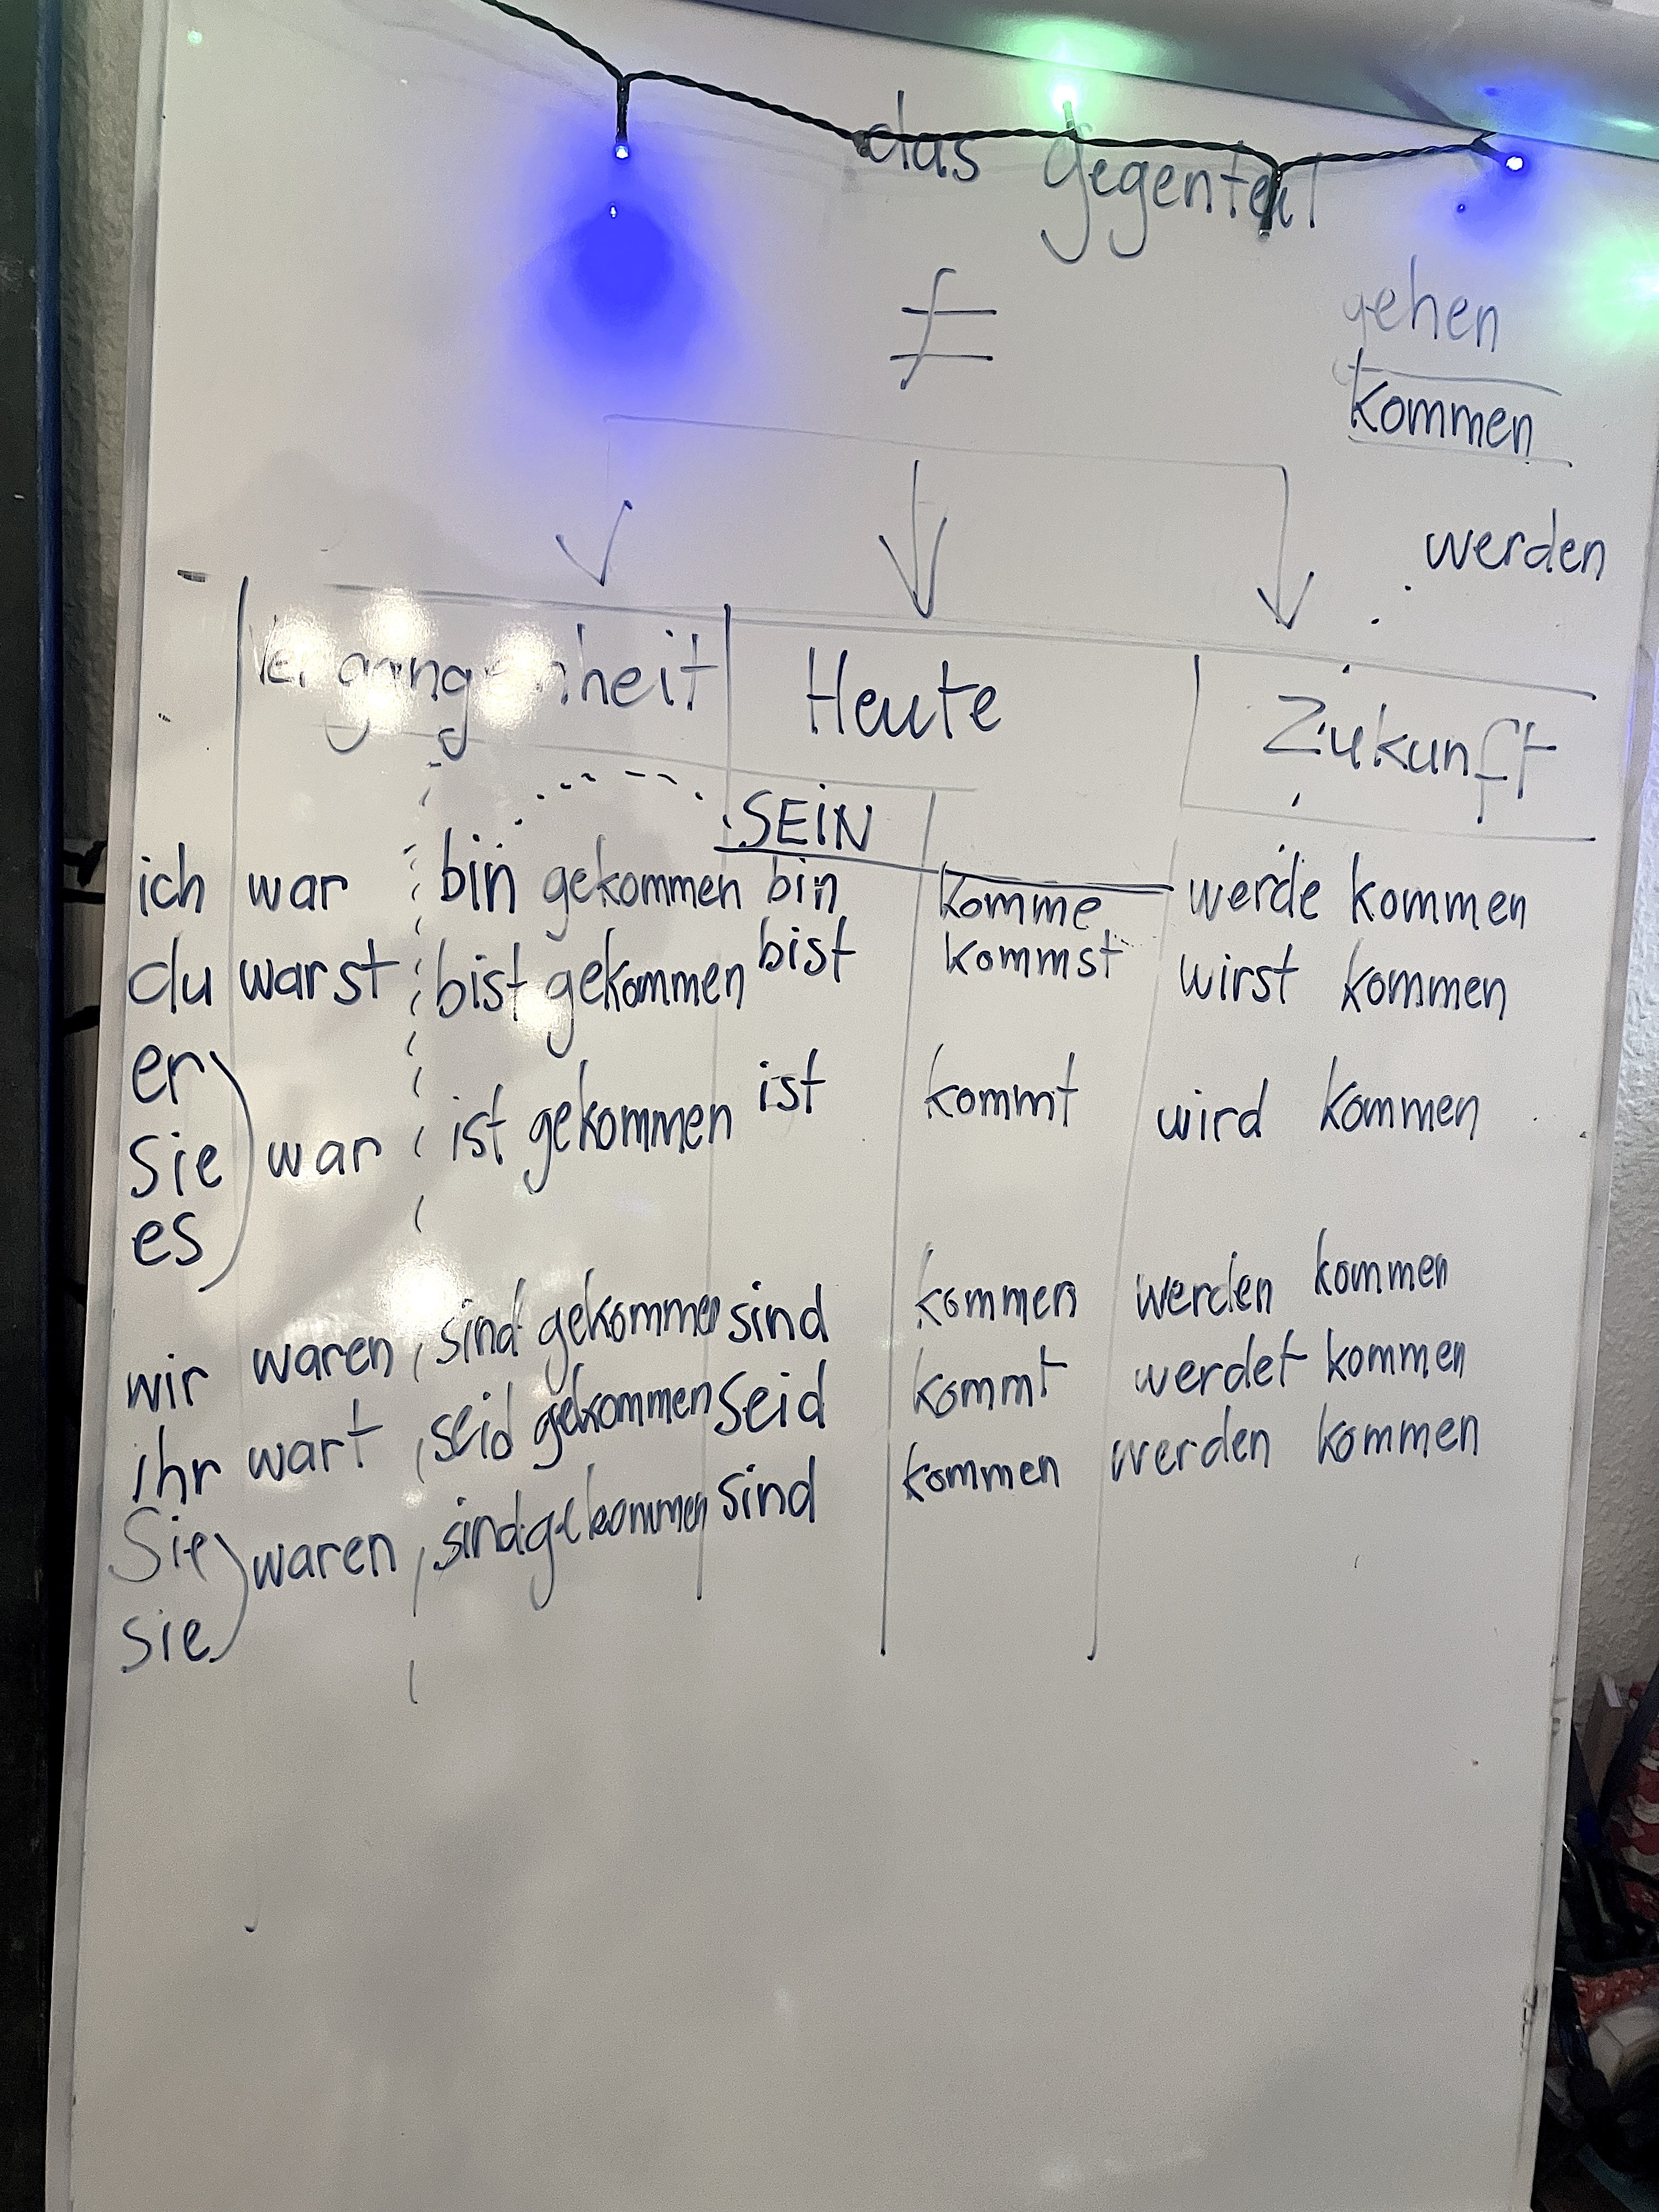 das gegenteil
≠
gehen
kommen
werden
Vergangenheit Heute Zukunft
SEIN
ich war bin gekommen bin komme werde kommen
du warst bist gekommen bist kommst wirst kommen
er
sie war ist gekommen ist kommt wird kommen
es
wir waren sind gekommen sind kommen werden kommen
ihr wart seid gekommen seid kommt werdet kommen
Sie waren sind gekommen sind kommen werden kommen
sie